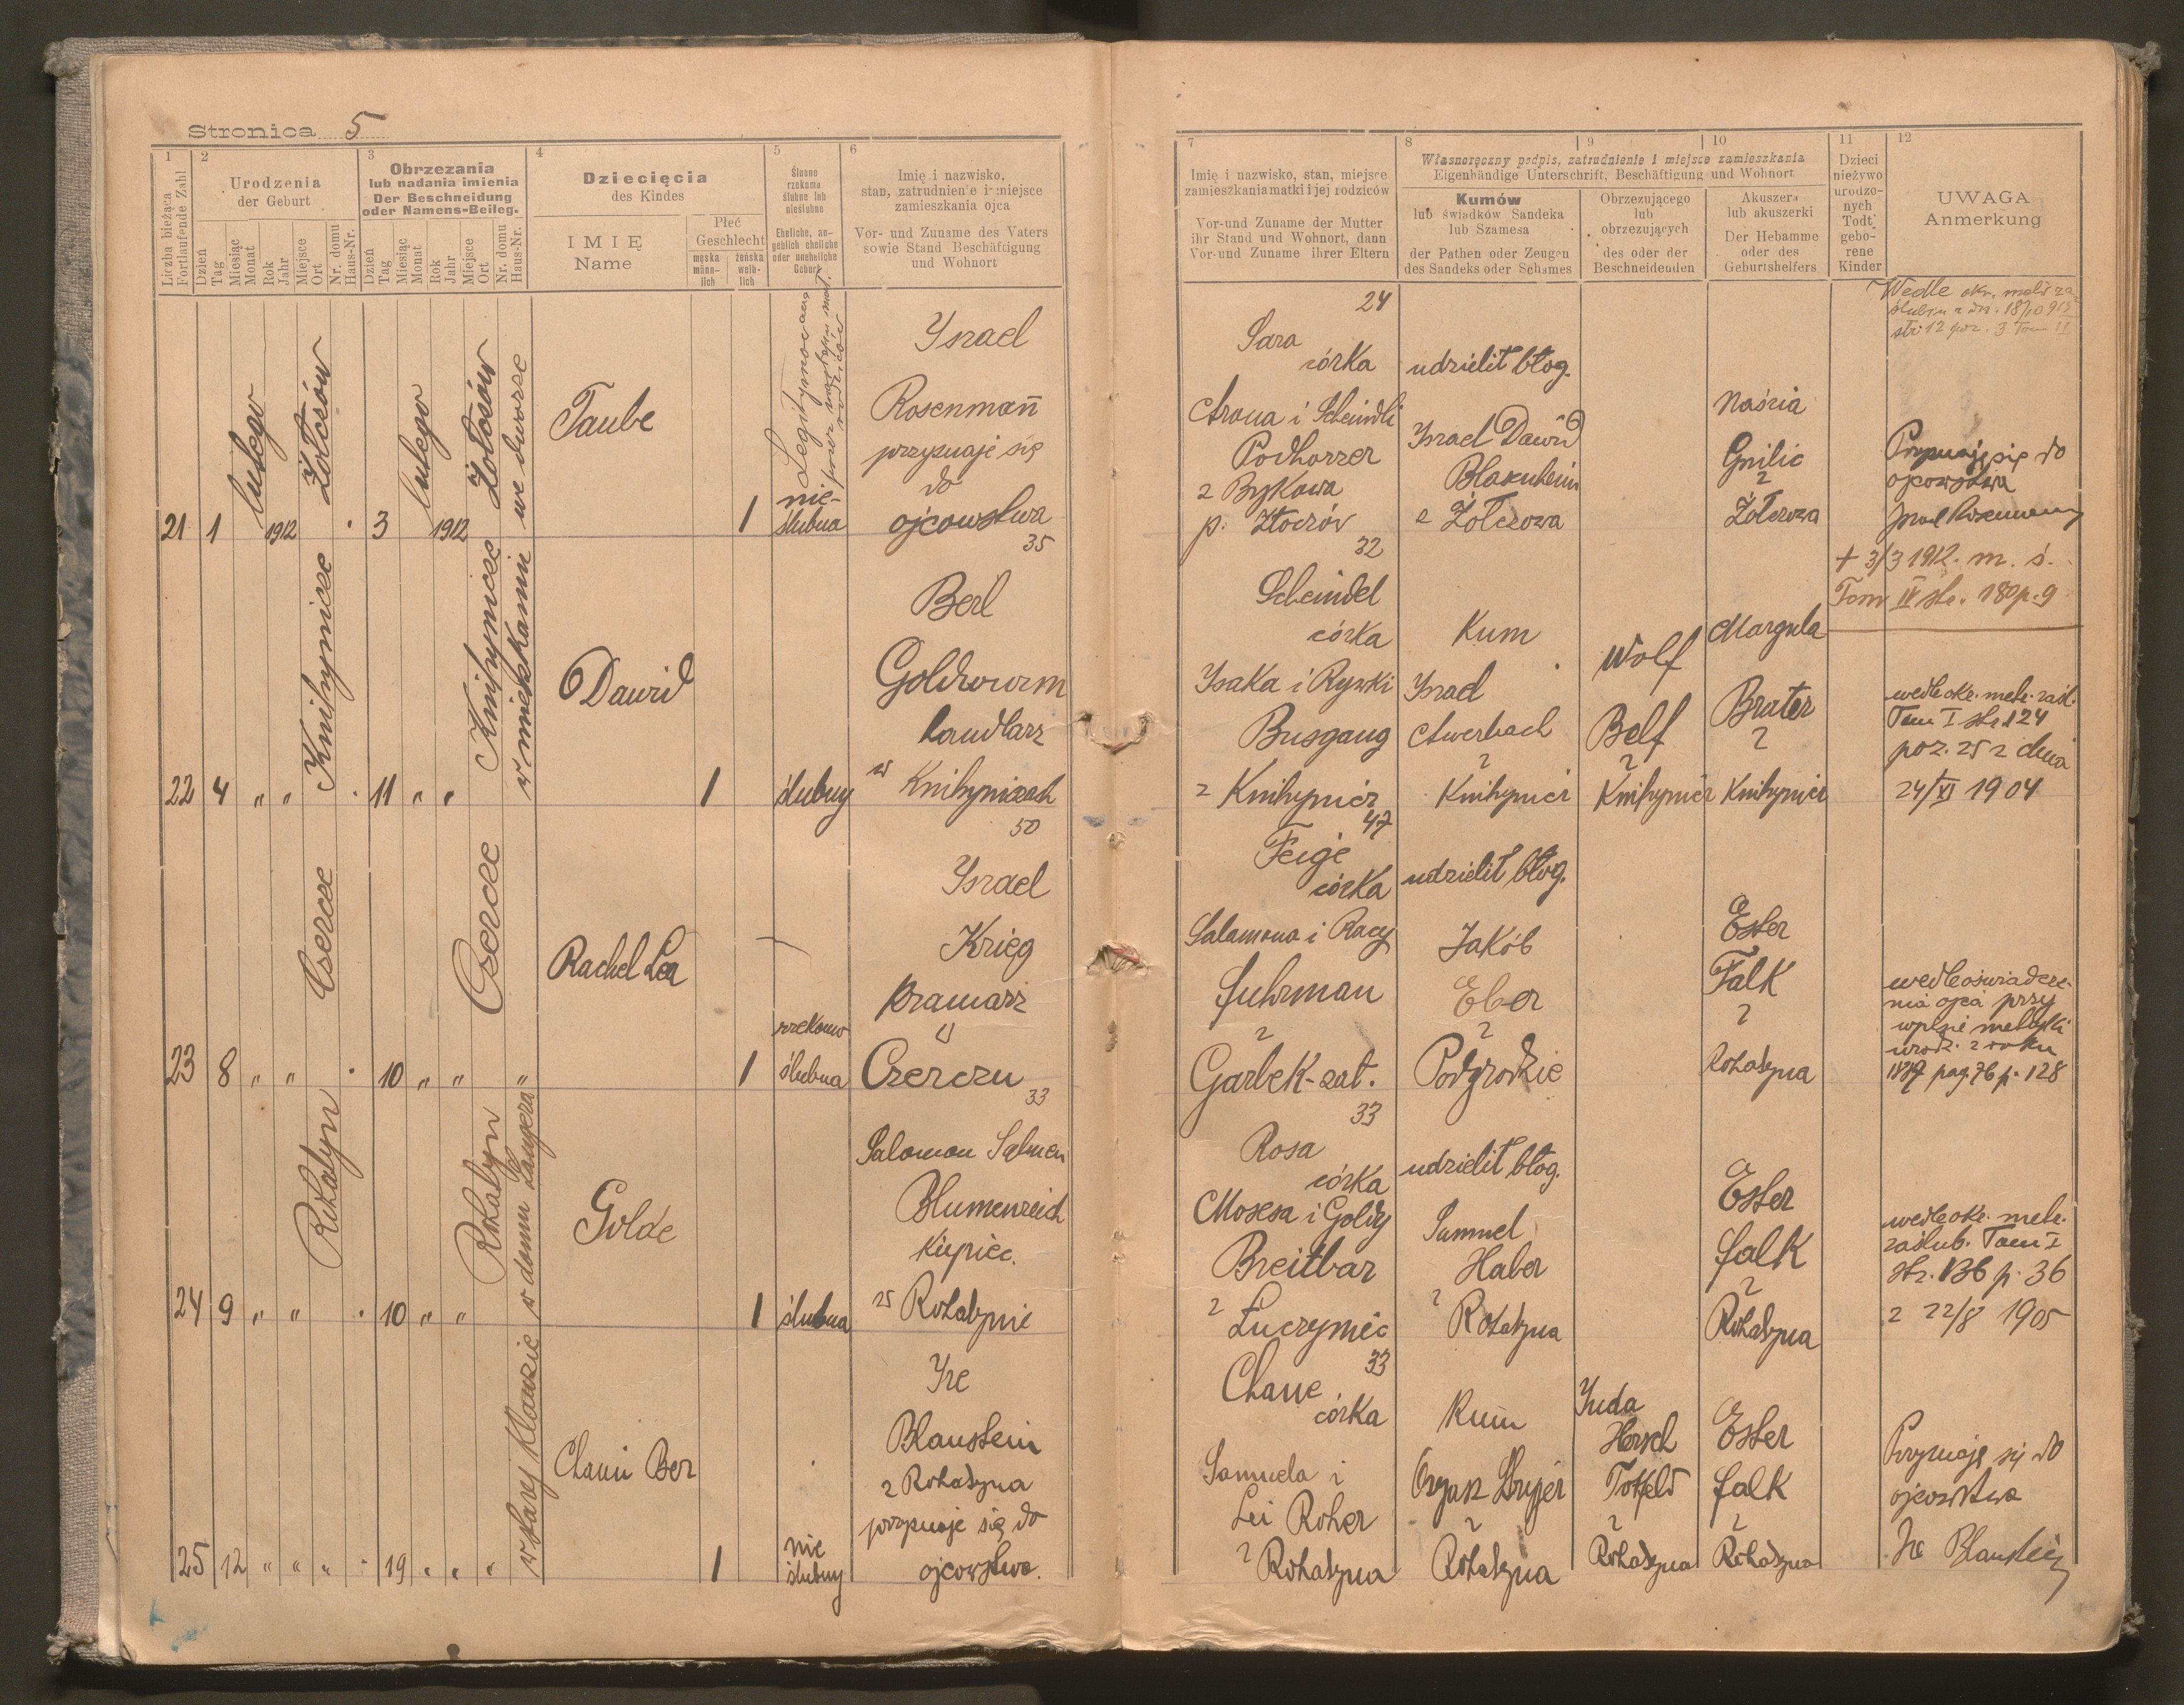 Stronica 5
1
Liczba bieżąca
Fortlaufende Zahl
2
Urodzenia
der Geburt
Dzień
Tag
Miesiąc
Monat
Rok
Jahr
Miejsce
Ort
Nr. domu
Haus-Nr.
3
Obrzezania
lub nadania imienia
Der Beschneidung
oder Namens-Beileg.
Dzień
Tag
Miesiąc
Monat
Rok
Jahr
Miejsce
Ort
Nr. domu
Haus-Nr.
4
Dziecięcia
des Kindes
IMIE
Name
Płeć
Geschlecht
męska
männ-
lich
żeńska
weib-
lich
5
Ślubne
rzekomo
ślubne lub
nieślubne
Eheliche, an-
geblich eheliche
oder uneheliche
Geburt
6
Imię i nazwisko,
stan, zatrudnienie i miejsce
zamieszkania ojca
Vor- und Zuname des Vaters
sowie Stand Beschäftigung
und Wohnort
7
Imię i nazwisko, stan, miejsce
zamieszkania matki i jej rodziców
Vor-und Zuname der Mutter
ihr Stand und Wohnort, dann
Vor-und Zuname ihrer Eltern
Własnoręczny podpis, zatrudnienie i miejsce zamieszkania
Eigenhändige Unterschrift, Beschäftigung und Wohnort
8
Kumów
lub świadków Sandeka
lub Szamesa
der Pathen oder Zeugen
des Sandeks oder Schames
9
Obrzezującego
lub
obrzezujących
des oder der
Beschneidenden
10
Akuszera
lub akuszerki
Der Hebamme
oder des
Geburtshelfers
11
Dzieci
nieżywo
urodzo-
nych
Todt
gebo-
rene
Kinder
12
UWAGA
Anmerkung
21
1
lutego
1912
Żołczów
3
lutego
1912
Żołczów
we dworze
Taube
1
Legitymowana
nie-
ślubna
Israel
Rosenmann
przyznaje się
do
ojcowstwa
24
Sara
córka
Arona i Scheindli
Podhorzer
z Bykowa
p. Złoczów
udzielił błog.
Israel Dawid
z Żołczowa
Naścia
Gnilic
z
Żołczowa
Wedle okr. metr. za-
ślubin z dn. 18/10 913
str. 12 poz. 3 Tom II
Przyznaję się do
ojcowstwa
22
4
" "
Knihynicze
11
" "
Knihynicze
w mieszkaniu
Dawid
1
ślubny
35
Berl
Goldwurm
handlarz
w Knihyniczach
32
Scheindel
córka
Isaka i Rywki
Busgang
z Knihynicz
Kum
Israel
Awerbach
z
Knihynicz
Wolf
Belf
z
Knihynicz
Margula
Brater
z
Knihynicz
+ 3/3 1912. m. ś.
Tom IV str. 180 p. 9
wedle okr. metr. zaśl.
Tom I str. 124
poz. 25 z dnia
24/XI 1904
23
8
" "
Czercze
10
" "
Czercze
"
Rachel Lea
1
rzekomo
ślubna
50
Israel
Krieg
kramarz
w
Czerczu
47
Feige
córka
Salamona i Racy
Fuhrman
z
udzielił błog.
Jakób
Eber
z
Podgrodzie
Ester
Falk
z
Rohatyna
wedle oświadcze-
nia ojca przy
wpisie metryki
urodz. z roku
pag. 76 p. 128
24
9
" "
Rohatyn
10
" "
Rohatyn
w domu Langera
Golde
1
ślubna
33
Salomon Salmen
Blumenreich
kupiec
w Rohatynie
33
Rosa
córka
Mosesa i Goldy
Breitbar
z Łuczyniec
udzielił błog.
Samuel
Haber
z Rohatyna
Ester
Falk
z
Rohatyna
wedle okr. metr.
zaślub. Tom I
str. 136 p. 36
z 22/8 1905
25
12
" " "
19
" " "
w starej klauzie
Chaim Ber
1
nie
ślubny
Ire
Blaustein
z Rohatyna
przyznaje się do
ojcowstwa.
33
Chane
córka
Samuela i
Lei Roher
z Rohatyna
Kum
z
Rohatyna
Juda
Hersch
z
Rohatyna
Ester
Falk
z
Rohatyna
Przyznaję się do
ojcowstwa
Ire Blaustein